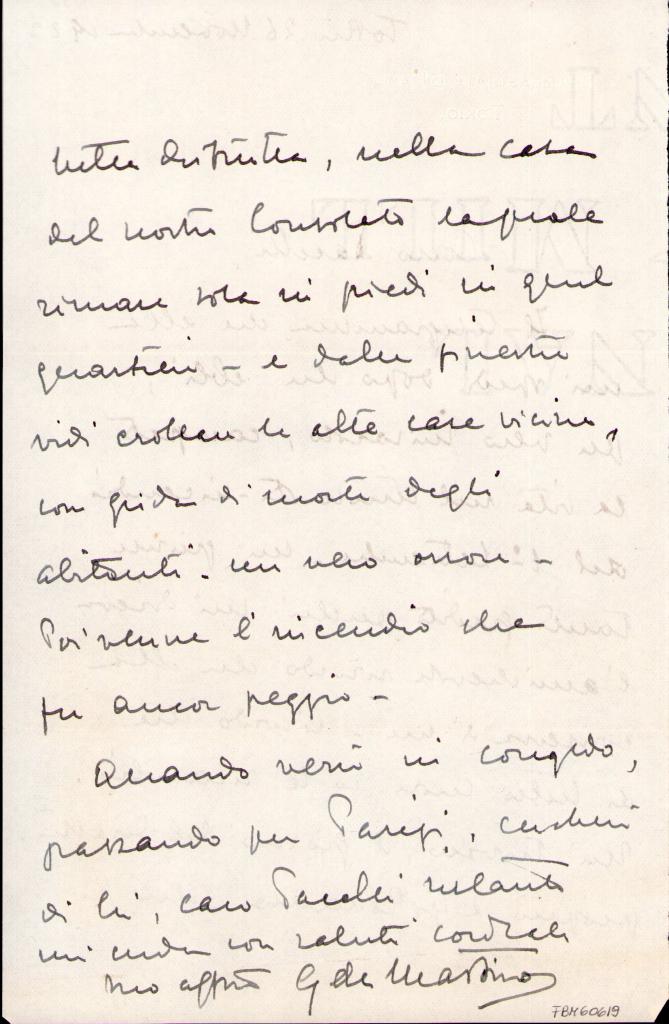 tutta distrutta, nella casa
del nostro Consolato la quale
rimase sola in piedi in quel
quartiere – e dalla finestra
vidi crollare le alte case vicine,
con grida di morte degli
abitanti. un vero orrore –
Poi venne l'incendio che
fu ancor peggio –
Quando verrò in congedo,
passando per Parigi, cercherò
di lei, caro Pacelli
mi creda con saluti cordiali
suo affmo G de Martino
FBM60619